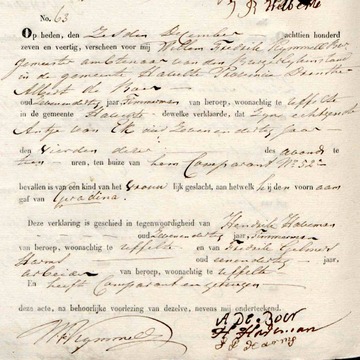 No. 63
Op heden, den Zesden December achttien honderd
zeven en veertig, verscheen voor mij Willem Fredrik
gemeente ambtenaar van den Burgerlijkenstand
in de gemeente Havelte Provincie Drenthe
Albert de Boer
oud jaar, Timmerman van beroep, woonachtig te Uffelte
in de gemeente Havelte dewelke verklaarde, dat Zijne echtgenote
Antje van Elk oud Zevenendertig jaar
den Vierden dezer des avonds te
tien uren, ten huize van hem Comparant No 52
bevallen is van een kind van het Vrouwelijk geslacht, aan hetwelk hij den voornaam
gaf van
Deze verklaring is geschied in tegenwoordigheid van Hendrik Hateman
oud jaar, Timmerman
van beroep, woonachtig te Uffelte en van Fredrik
Harms oud eenendertig jaar,
arbeider van beroep, woonachtig te Uffelte
En heeft Comparant en getuigen
deze acte, na behoorlijke voorlezing van dezelve, nevens mij onderteekend.
A De Boer
H Hateman
Harms